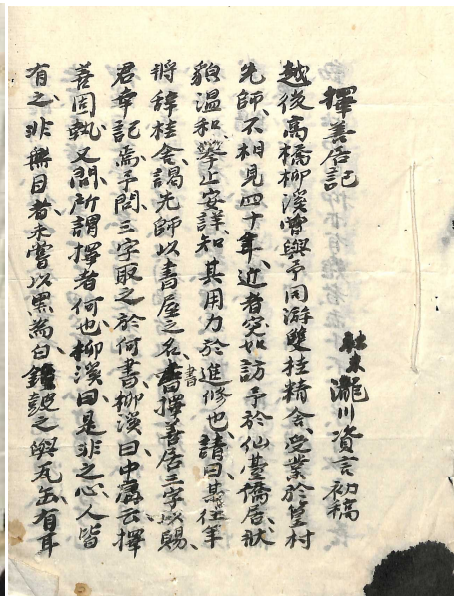 擇善居記
社末 瀧川資言初稿
越後高橋柳溪曾與予同游雙桂精舍、受業於篁村
先師、不相見四十年、近者突如訪予於仙臺僑居、狀
貌溫和、擧止安詳、知其用力於進修也、請曰、某往年
將辭桂舍、謁先師以書屋之名、書擇善居三字以賜、
君幸記焉、予問三字取之於何書、柳溪曰、中庸云、擇
善固執、又問、所謂擇者何也、柳溪曰、是非之心、人皆
有之、非無目者、未嘗以黑為白、鐘鼓之與瓦缶、有耳